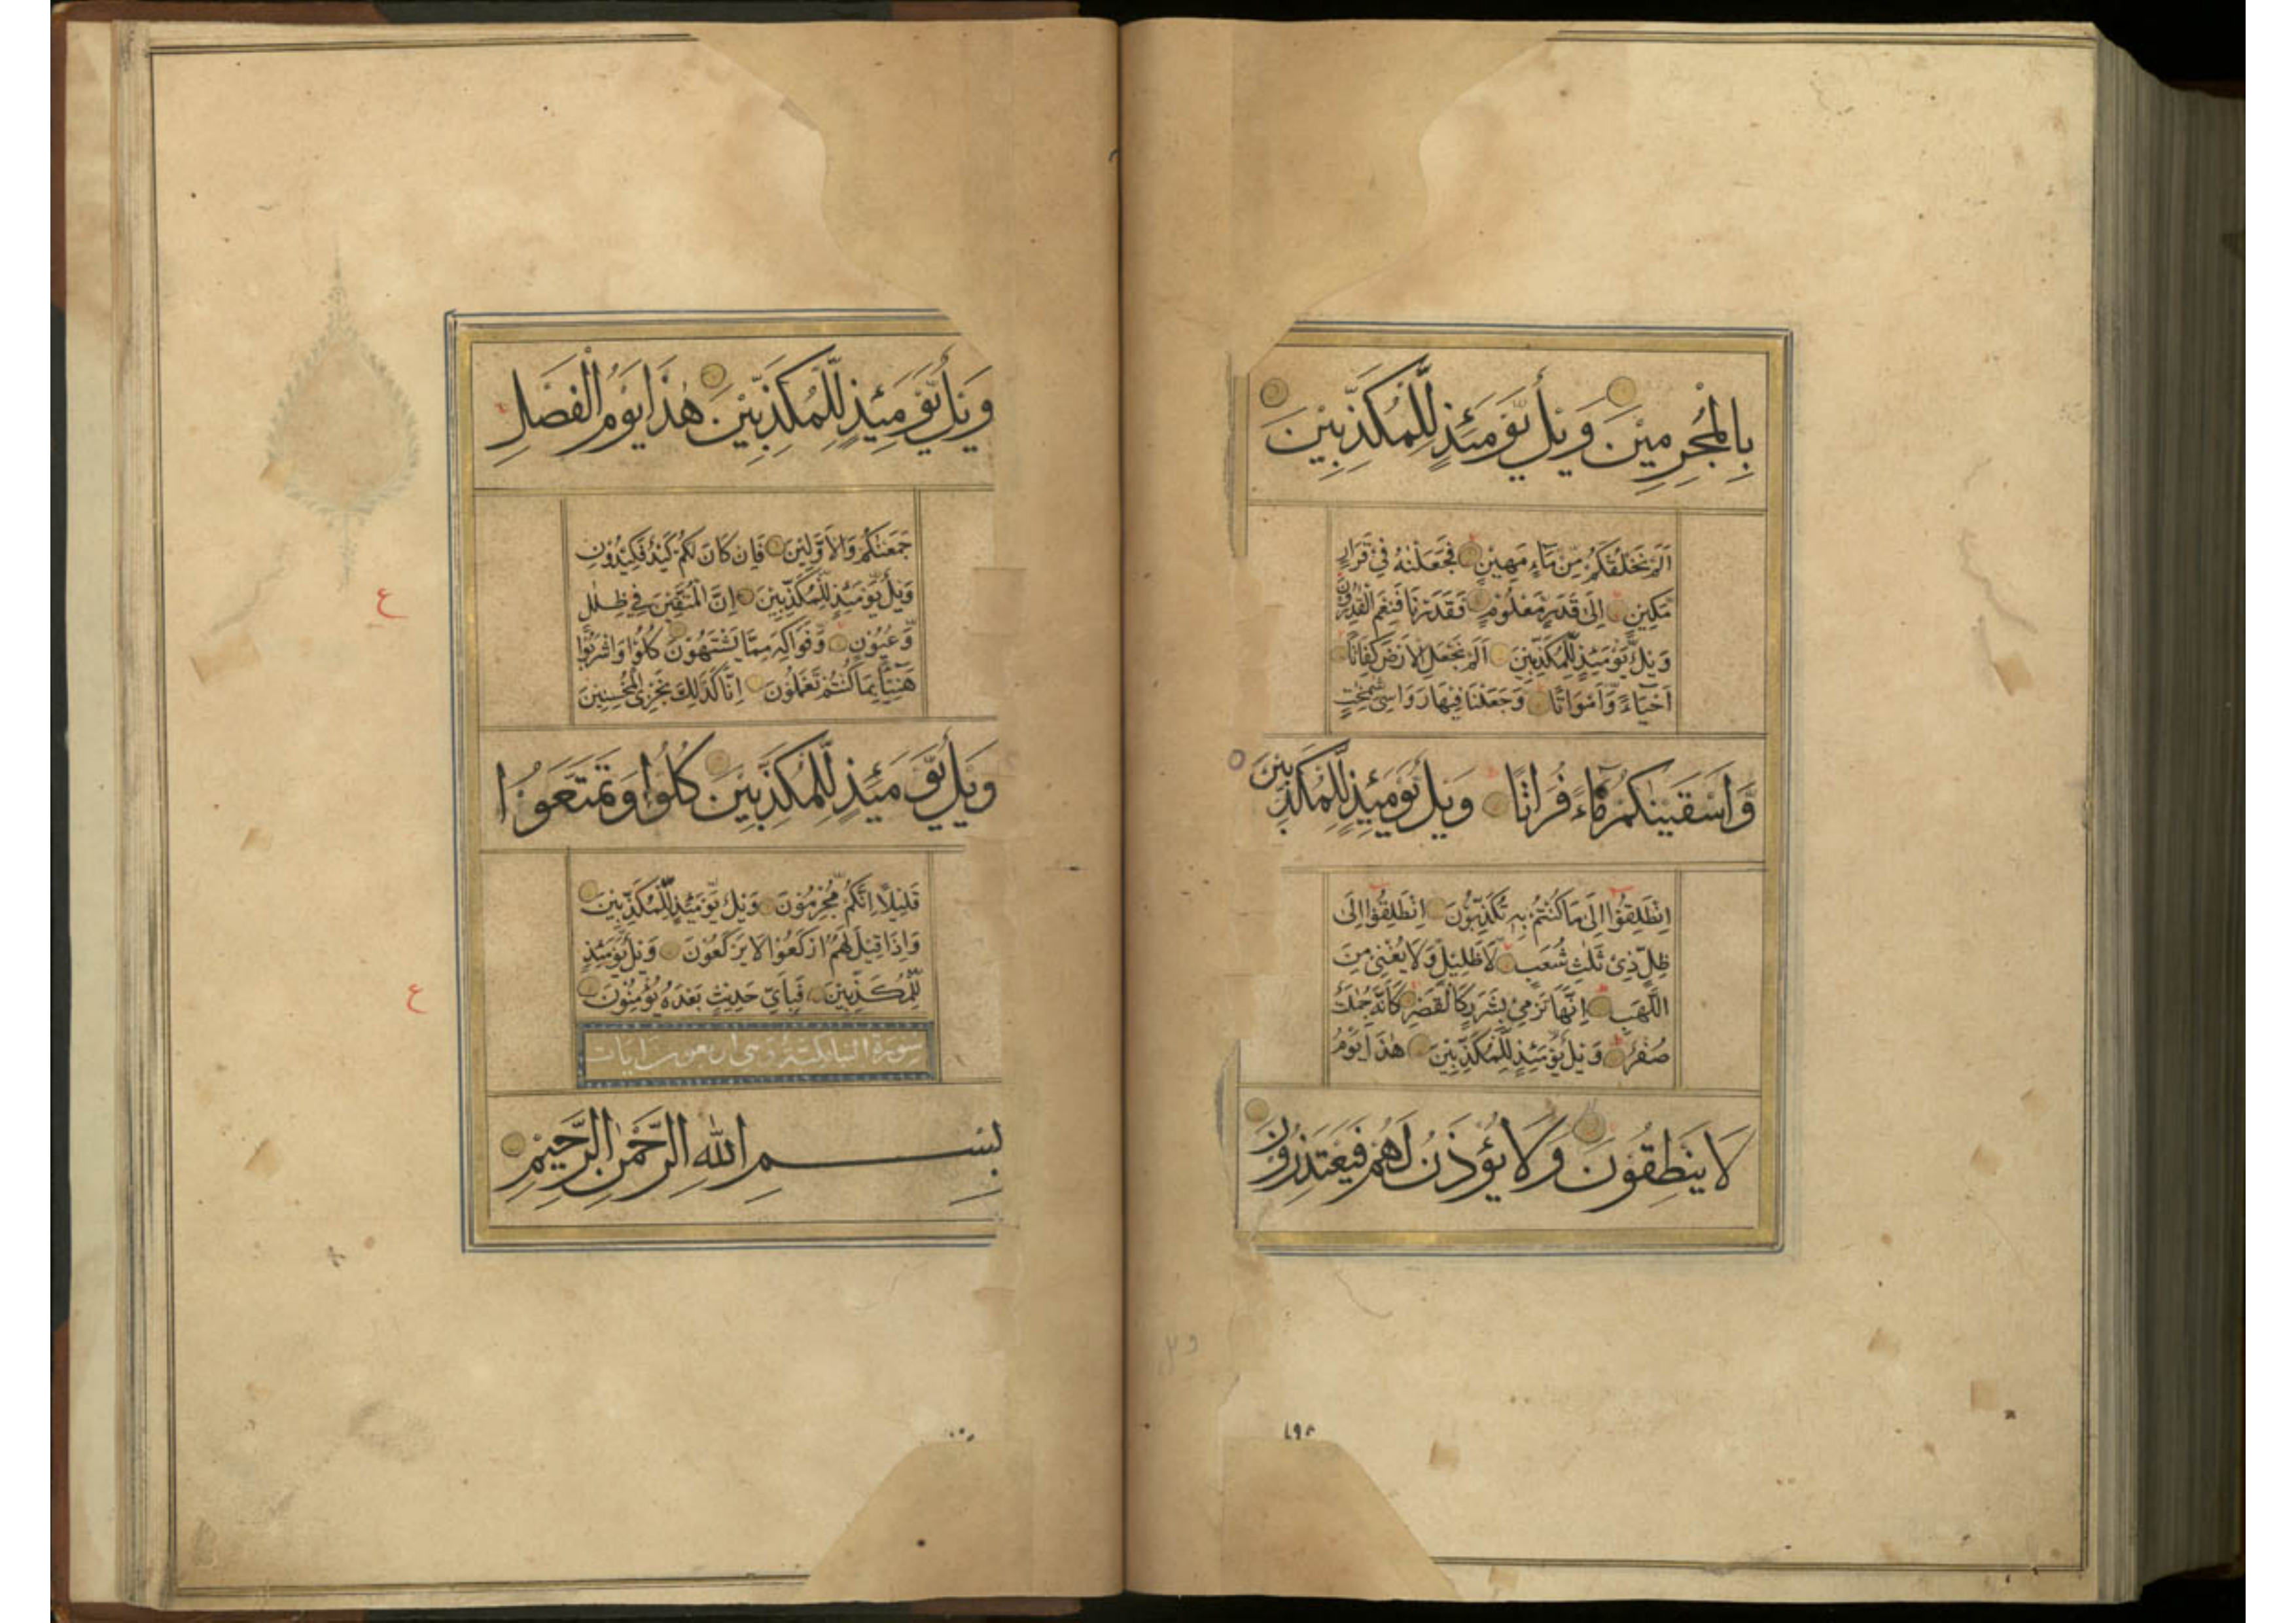 بِالْمُجْرِمِيْنَ وَيْلٌ يَّوْمَئِذٍ لِّلْمُكَذِّبِيْنَ
اَلَمْ نَخْلُقْكُمْ مِّنْ مَّآءٍ مَهِيْنٍ فَجَعَلْنٰهُ فِيْ قَرَارٍ
مَّكِيْنٍ اِلٰى قَدَرٍ مَّعْلُوْمٍ فَقَدَرْنَا فَنِعْمَ الْقٰدِرُوْنَ
وَيْلٌ يَّوْمَئِذٍ لِّلْمُكَذِّبِيْنَ اَلَمْ نَجْعَلِ الْاَرْضَ كِفَاتًا
اَحْيَآءً وَّاَمْوَاتًا وَجَعَلْنَا فِيْهَا رَوَاسِىَ شٰمِخٰتٍ
وَّاَسْقَيْنٰكُمْ مَّآءً فُرَاتًا وَيْلٌ يَّوْمَئِذٍ لِّلْمُكَذِّبِيْنَ
اِنْطَلِقُوْا اِلٰى مَا كُنْتُمْ بِهٖ تُكَذِّبُوْنَ اِنْطَلِقُوْا اِلٰى
ظِلٍّ ذِيْ ثَلٰثِ شُعَبٍ لَا ظَلِيْلٍ وَّلَا يُغْنِيْ مِنَ
اللَّهَبِ اِنَّهَا تَرْمِيْ بِشَرَرٍ كَالْقَصْرِ كَاَنَّهٗ جِمٰلَتٌ
صُفْرٌ وَيْلٌ يَّوْمَئِذٍ لِّلْمُكَذِّبِيْنَ هٰذَا يَوْمُ
لَا يَنْطِقُوْنَ وَلَا يُؤْذَنُ لَهُمْ فَيَعْتَذِرُوْنَ
وَيْلٌ يَّوْمَئِذٍ لِّلْمُكَذِّبِيْنَ هٰذَا يَوْمُ الْفَصْلِ
جَمَعْنٰكُمْ وَالْاَوَّلِيْنَ فَاِنْ كَانَ لَكُمْ كَيْدٌ فَكِيْدُوْنِ
وَيْلٌ يَّوْمَئِذٍ لِّلْمُكَذِّبِيْنَ اِنَّ الْمُتَّقِيْنَ فِيْ ظِلٰلٍ
وَّعُيُوْنٍ وَّفَوَاكِهَ مِمَّا يَشْتَهُوْنَ كُلُوْا وَاشْرَبُوْا
هَنِيْٓئًا بِمَا كُنْتُمْ تَعْمَلُوْنَ اِنَّا كَذٰلِكَ نَجْزِى الْمُحْسِنِيْنَ
وَيْلٌ يَّوْمَئِذٍ لِّلْمُكَذِّبِيْنَ كُلُوْا وَتَمَتَّعُوْا
قَلِيْلًا اِنَّكُمْ مُّجْرِمُوْنَ وَيْلٌ يَّوْمَئِذٍ لِّلْمُكَذِّبِيْنَ
وَاِذَا قِيْلَ لَهُمُ ارْكَعُوْا لَا يَرْكَعُوْنَ وَيْلٌ يَّوْمَئِذٍ
لِّلْمُكَذِّبِيْنَ فَبِاَيِّ حَدِيْثٍ بَعْدَهٗ يُؤْمِنُوْنَ
سورة النبا مكية وهي اربعون ايات
بِسْمِ اللّٰهِ الرَّحْمٰنِ الرَّحِيْمِ
ع
ع